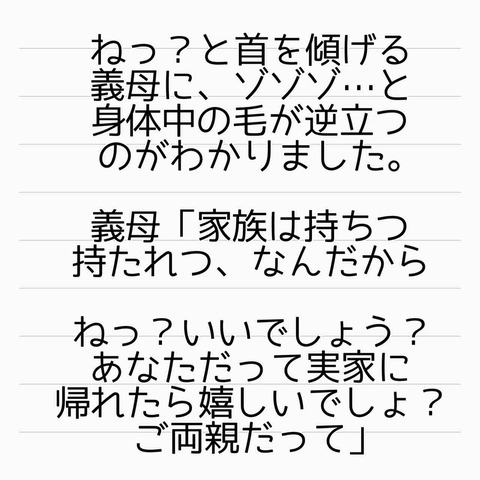 ねっ？と首を傾げる
義母に、ゾゾゾ…と
身体中の毛が逆立つ
のがわかりました。
義母「家族は持ちつ
持たれつ、なんだから
ねっ？いいでしょう？
あなただって実家に
帰れたら嬉しいでしょ？
ご両親だって」